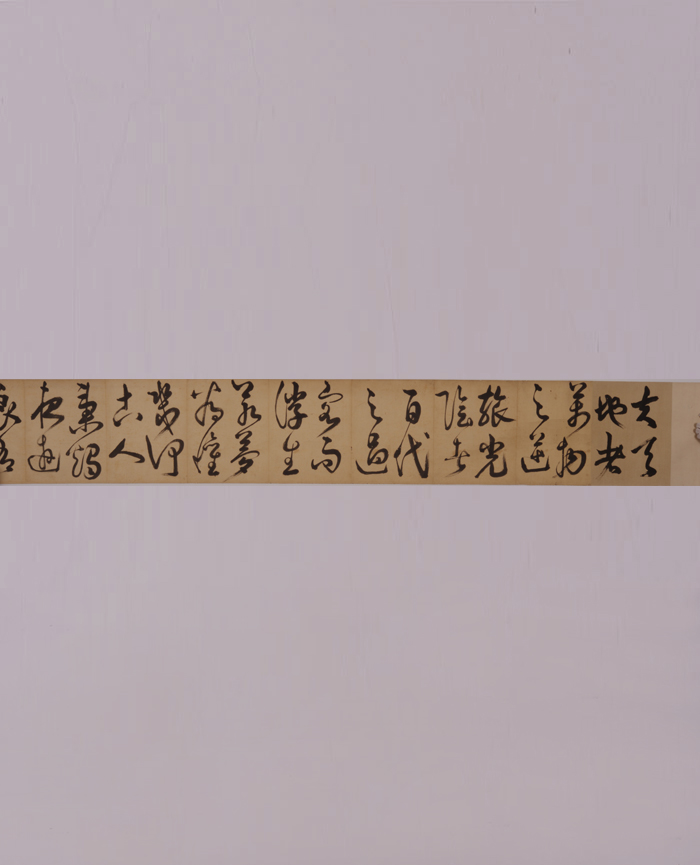 夫天
地者
萬物
之逆
旅光
陰者
百代
之過
客而
浮生
若夢
為懽
幾何
古人
秉燭
夜遊